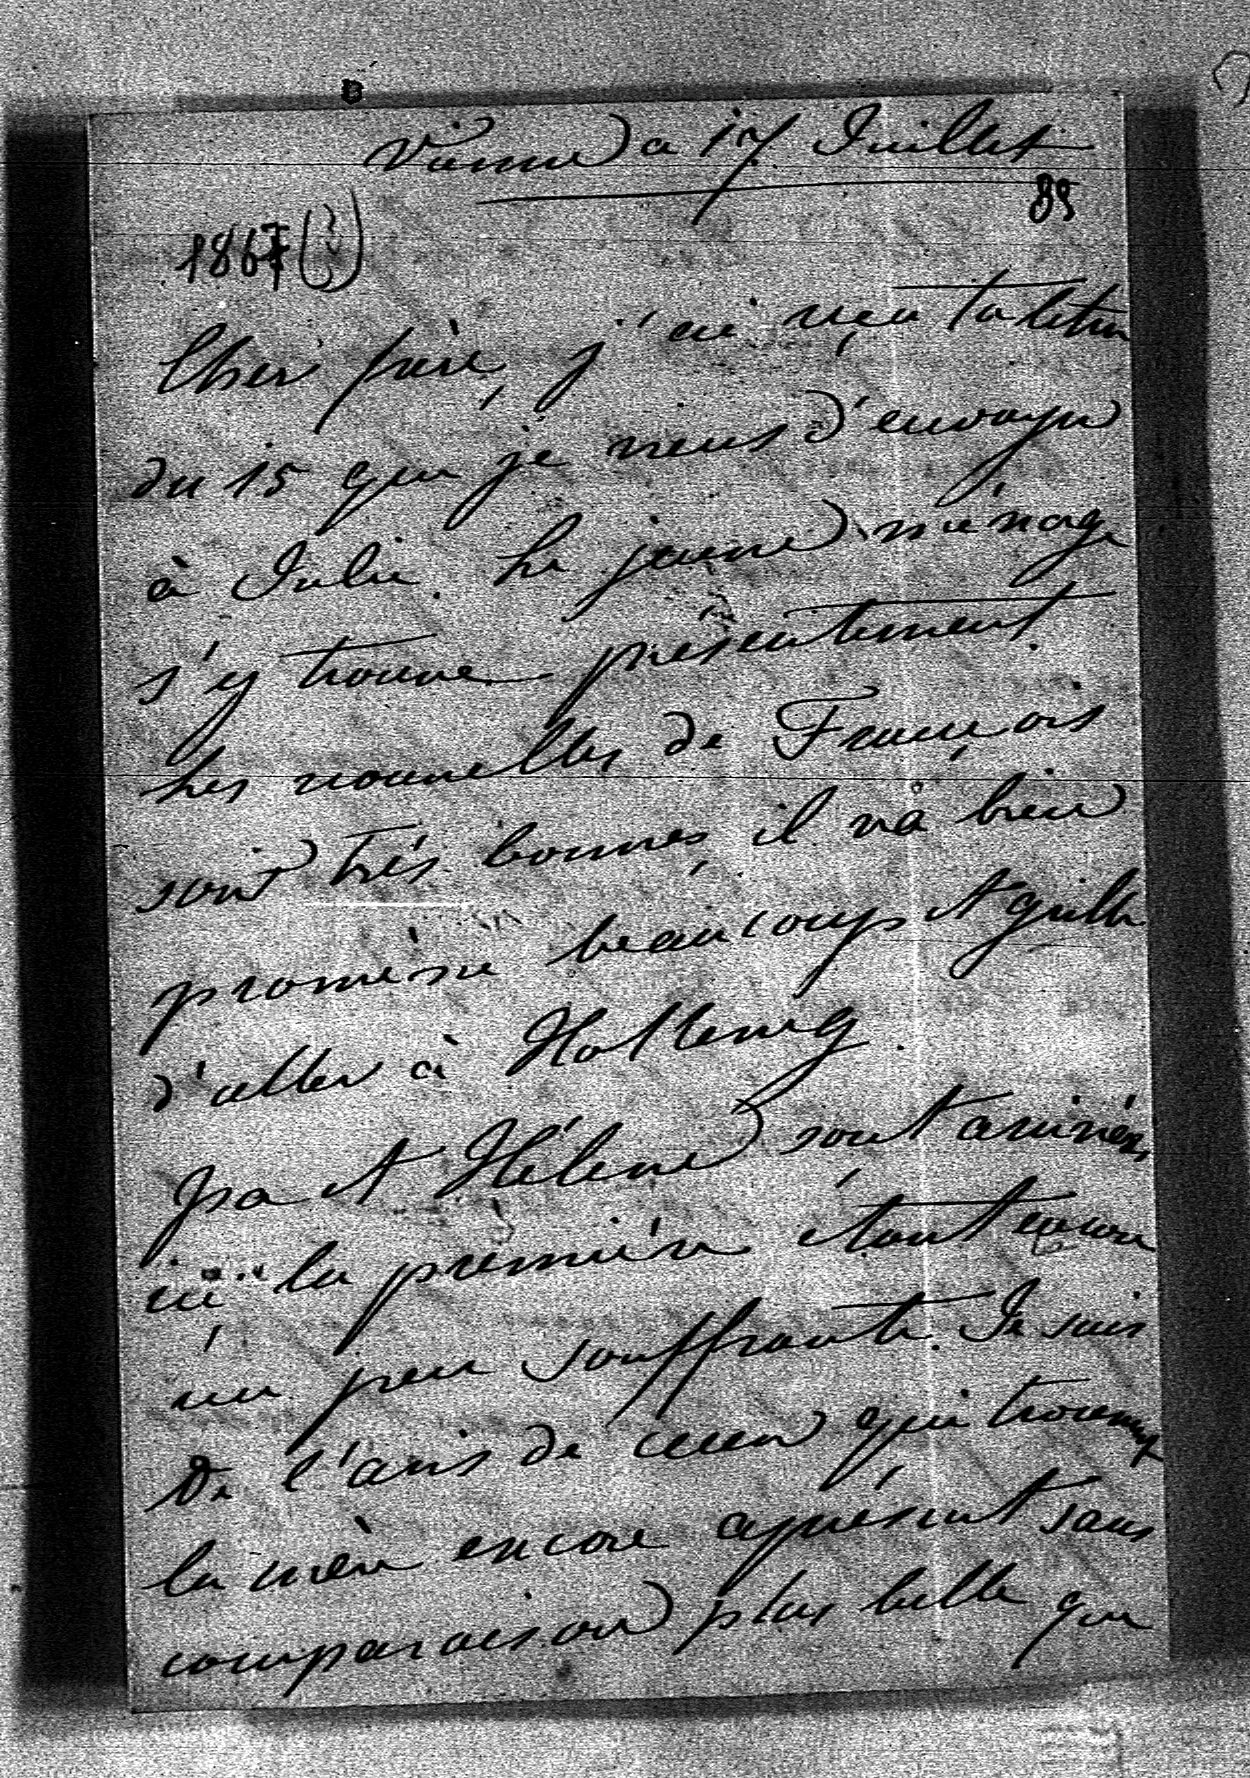 Vienne a 17 Juillet
89
1867 (?)
Cher frère, j'ai reçu ta lettre
du 15 que je viens d'envoyer
à Julie. Le jeune ménage
s'y trouve présentement.
Les nouvelles de François
sont très bonnes, il và bien
promène beaucoup et
d'aller à
et Hélène sont arrivées
ici la première étant encore
un peu souffrante. Je suis
de l'avis de ceux qui trouvent
la mère encore aprésent sans
comparaison plus belle que